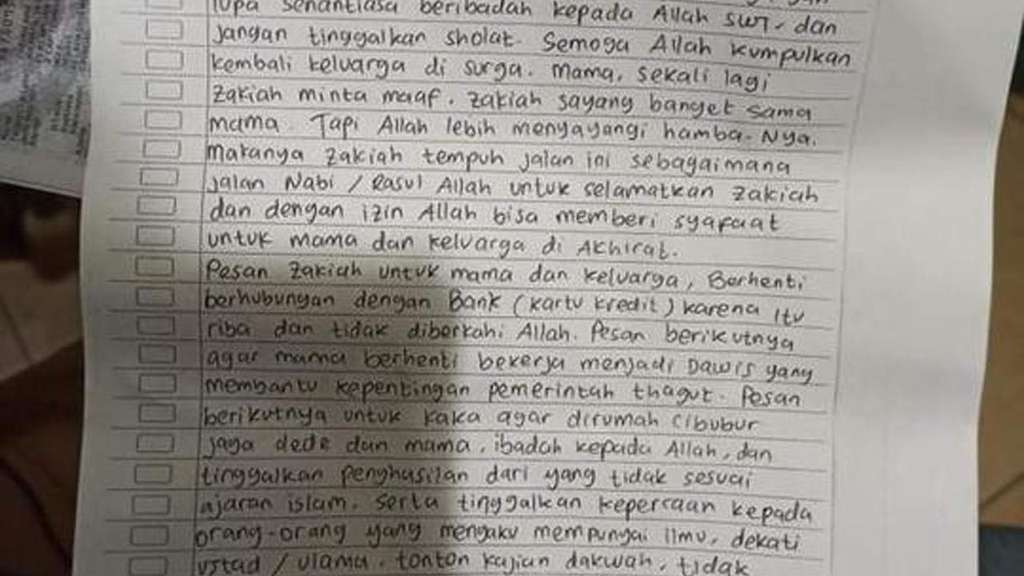 lupa senantiasa beribadah kepada Allah SWT. dan
jangan tinggalkan sholat. Semoga Allah kumpulkan
kembali keluarga di surga. Mama, sekali lagi
Zakiah minta maaf. Zakiah sayang banget sama
mama. Tapi Allah lebih menyayangi hamba-Nya.
makanya zakiah tempuh jalan ini sebagaimana
jalan Nabi / Rasul Allah untuk selamatkan zakiah
dan dengan izin Allah bisa memberi syafaat
untuk mama dan keluarga di Akhirat.
Pesan zakiah untuk mama dan keluarga, Berhenti
berhubungan dengan Bank (kartu kredit) karena itu
riba dan tidak diberkahi Allah. Pesan berikutnya
agar mama berhenti bekerja menjadi Dawis yang
membantu kepentingan pemerintah thagut. Pesan
berikutnya untuk kaka agar dirumah Cibubur
jaga dede dan mama, ibadah kepada Allah, dan
tinggalkan penghasilan dari yang tidak sesuai
ajaran islam. serta tinggalkan kepercaan kepada
orang-orang yang mengaku mempunyai ilmu, dekati
ustad / ulama, tonton kajian dakwah, tidak